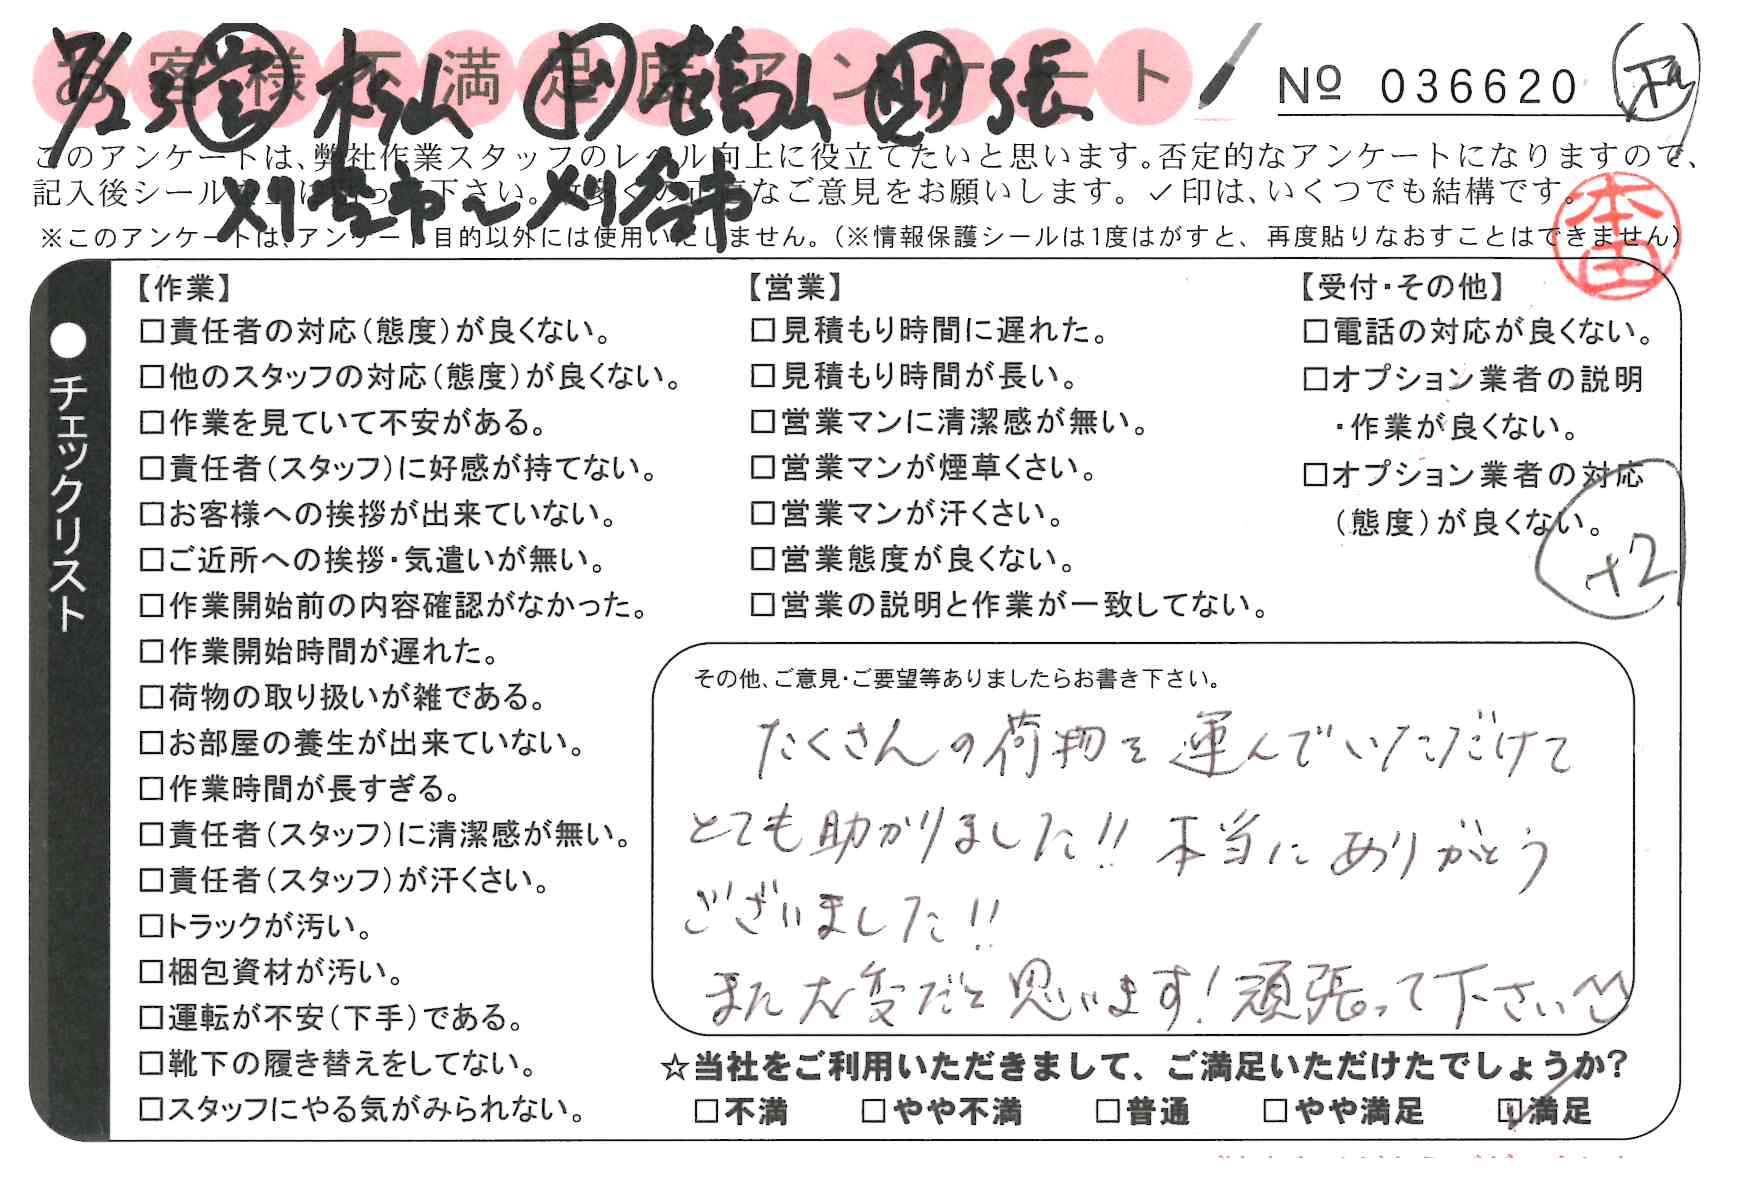 お客様不満足度アンケート
杉山
No 036620
このアンケートは、弊社作業スタッフのレベル向上に役立てたいと思います。否定的なアンケートになりますので、
記入後シール 下さい。 なご意見をお願いします。✓印は、いくつでも結構です。
刈谷市〜刈谷市
※このアンケートは、アンケート目的以外には使用いたしません。(※情報保護シールは1度はがすと、再度貼りなおすことはできません)
本田
●チェックリスト
【作業】
□責任者の対応(態度)が良くない。
□他のスタッフの対応(態度)が良くない。
□作業を見ていて不安がある。
□責任者(スタッフ)に好感が持てない。
□お客様への挨拶が出来ていない。
□ご近所への挨拶・気遣いが無い。
□作業開始前の内容確認がなかった。
□作業開始時間が遅れた。
□荷物の取り扱いが雑である。
□お部屋の養生が出来ていない。
□作業時間が長すぎる。
□責任者(スタッフ)に清潔感が無い。
□責任者(スタッフ)が汗くさい。
□トラックが汚い。
□梱包資材が汚い。
□運転が不安(下手)である。
□靴下の履き替えをしてない。
□スタッフにやる気がみられない。
【営業】
□見積もり時間に遅れた。
□見積もり時間が長い。
□営業マンに清潔感が無い。
□営業マンが煙草くさい。
□営業マンが汗くさい。
□営業態度が良くない。
□営業の説明と作業が一致してない。
【受付・その他】
□電話の対応が良くない。
□オプション業者の説明
・作業が良くない。
□オプション業者の対応
(態度)が良くない。
+2
その他、ご意見・ご要望等ありましたらお書き下さい。
たくさんの荷物を運んでいただけて
とても助かりました!! 本当にありがとう
ございました!!
また大変だと思います!頑張って下さい
☆当社をご利用いただきまして、ご満足いただけたでしょうか?
□不満 □やや不満 □普通 □やや満足 ☑満足